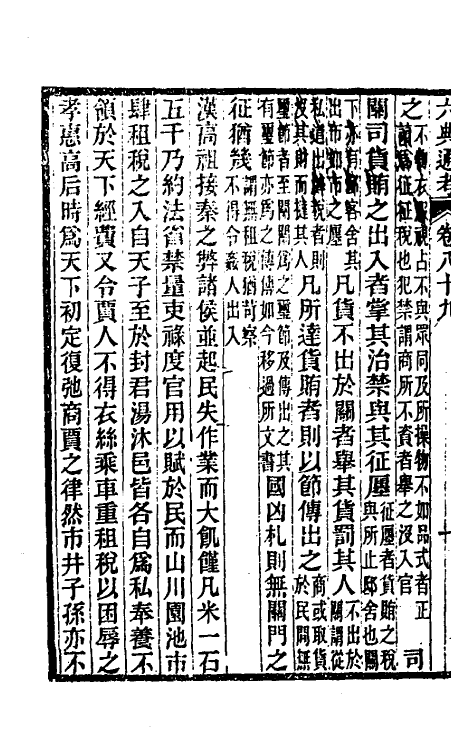 六典通考 卷八十九
之 不物衣服視占不與眾同及所操物不如品式者正
讀為征征稅也犯禁謂商所不資者舉之沒入官 司
關司貨賄之出入者掌其治禁與其征廛 征廛者貨賄之稅
與所止邸舍也關
下亦有邸客舍其
出布如市之廛 凡貨不出於關者舉其貨罰其人 不出於
關謂從
私道出辟稅者則
沒其財而撻其人 凡所達貨賄者則以節傳出之 商或取貨
於民間無
璽節者至關關為之璽節及傳出之其
有璽節亦為之傳傳如今移過所文書 國凶札則無關門之
征猶幾 謂無租稅猶苛察
不得令姦人出入
漢高祖接秦之弊諸侯並起民失作業而大飢饉凡米一石
五千乃約法省禁量吏祿度官用以賦於民而山川園池市
肆租稅之入自天子至於封君湯沐邑皆各自為私奉養不
領於天下經費又令賈人不得衣絲乘車重租稅以困辱之
孝惠高后時爲天下初定復弛商賈之律然市井子孫亦不